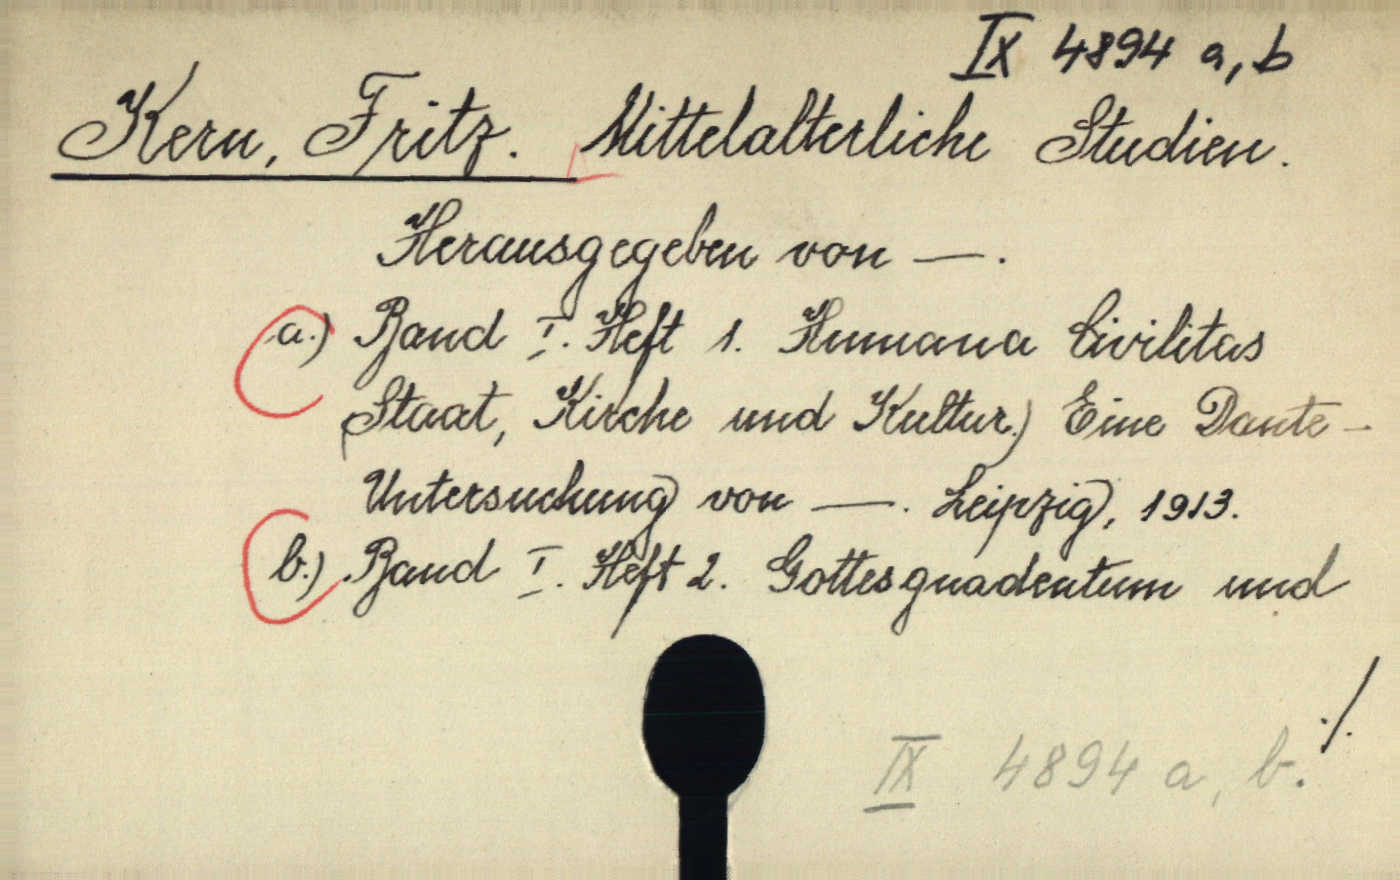 IX 4894 a, b
Kern, Fritz. Mittelalterliche Studien.
Herausgegeben von —.
a.) Band I. Heft 1. Humana Civilitas
(Staat, Kirche und Kultur.) Eine Dante-
Untersuchung von —. Leipzig, 1913.
b.) Band I. Heft 2. Gottesgnadentum und
./.
IX 4894 a, b.